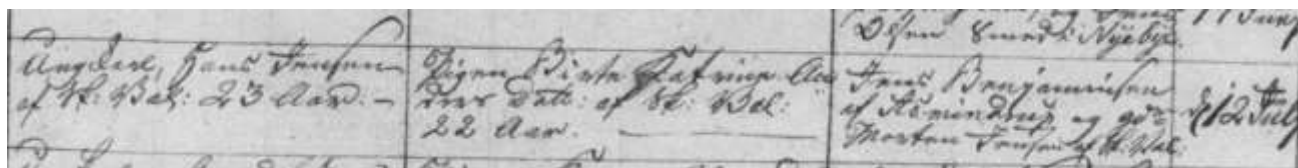 Olsen Smed i Nÿebÿe.
Ungkarl, Hans Jensen
af Sk: Val: 23 Aar. –
Pigen Birte Katrine An
ders Datt: af Sk: Val:
22 Aar.
Jens Benjaminsen
af Asmindrup og gd=
Morten Jensen af Sk. Val.
d 12 July